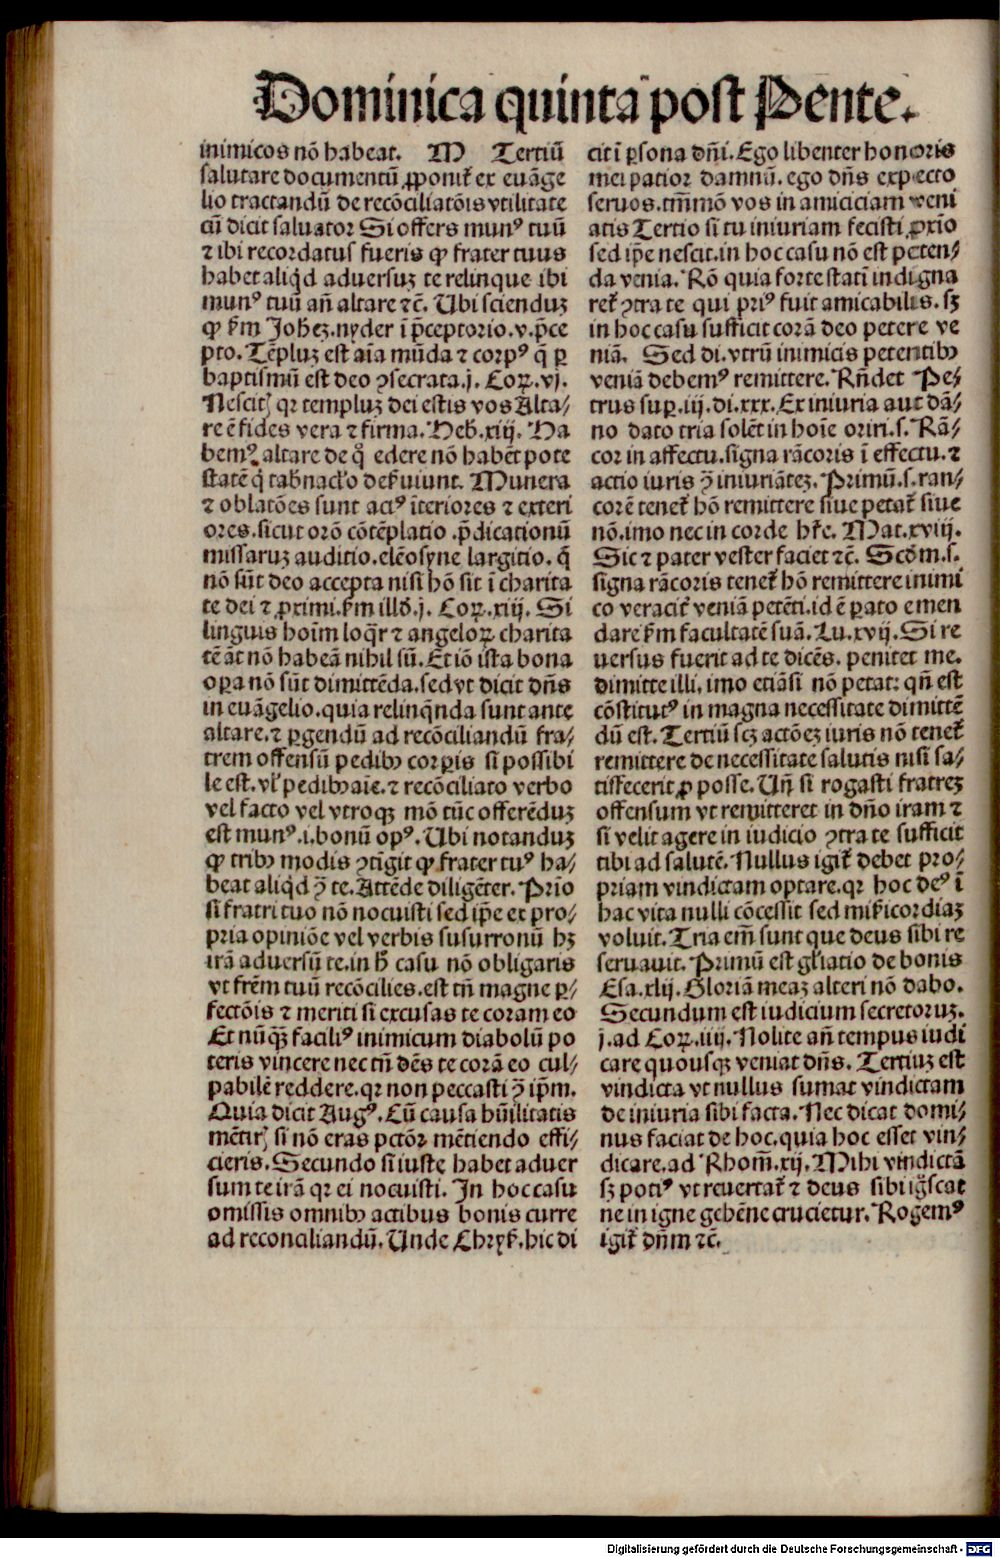 Dominica quinta post Pente.
inimicos nō habeat. M Tertiū
salutare documentū ꝓponit᷑ ex euāge
lio tractandū de recōciliatōis vtilitate
cū dicit saluator Si offers munꝰ tuū
⁊ ibi recordatus fueris ꝙ frater tuus
habet aliq̇d aduersuꝫ te relinque ibi
munꝰ tuū añ altare ⁊c̄. Ubi scienduꝫ
ꝙ ẜm Joheꝫ.nyder ī p̄ceptorio.v.p̄ce
pto. Tēpluꝫ est aīa mūda ⁊ corpꝰ q̄ ꝑ
baptismū est deo ꝯsecrata.j. Coꝝ.vj.
Nescitꝭ qꝛ templuꝫ dei estis vos Alta⸗
re ē fides vera ⁊ firma. Heb̄.xiij. Ha
bemꝰ altare de qͦ edere nō habēt pote
statē q̇ tab̄nacl̓o des̓uiunt. Munera
⁊ oblatōes sunt actꝰ īteriores ⁊ exteri
ores.sicut orō cōtēplatio .p̄dicationū
missaruꝫ auditio.elēosyne largitio. q̄
nō sūt deo accepta nisi hō sit ī charita
te dei ⁊ ꝓximi.ẜm illð.j. Coꝝ.xiij. Si
linguis hoīm loq̄r ⁊ angeloꝝ charita
tē āt nō habeā nihil sū. Et iō ista bona
oꝑa nō sūt dimittēda.sed vt dicit dn̄s
in euāgelio.quia relinq̄nda sunt ante
altare.⁊ ꝑgendū ad recōciliandū fra⸗
trem offensū pedibꝫ corꝑis si possibi
le est.vl̓ pedibꝫ aīe.⁊ recōciliato verbo
vel facto vel vtroqꝫ mō tūc offerēduꝫ
est munꝰ.i.bonū opꝰ. Ubi notanduꝫ
ꝙ tribꝫ modis ꝯtīgit ꝙ frater tuꝰ ha⸗
beat aliq̇d ꝯ̄ te. Attēde diligēter. Prīo
si fratri tuo nō nocuisti sed ip̄e ex pro⸗
pria opiniōe vel verbis susurronū hꝫ
irā aduersū te.in hͦ casu nō obligaris
vt fr̄em tuū recōcilies.est tn̄ magne ꝑ⸗
fectōis ⁊ meriti si excusas te coram eo
Et nūqͣꝫ faciliꝰ inimicum diabolū po
teris vincere nec tn̄ dēs te corā eo cul⸗
pabilē reddere.qꝛ non peccasti ꝯ̄ ip̄m.
Quia dicit Augꝰ. Cū causa hūilitatis
mētirꝭ si nō eras pctōꝛ mētiendo effi⸗
cieris. Secundo si iuste habet aduer
sum te irā qꝛ ei nocuisti. In hoc casu
omissis omnibꝫ actibus bonis curre
ad reconciliandū. Unde Chryẜ. hic di
cit ī ꝑsona dn̄i. Ego libenter honoris
mei patior damnū. ego dn̄s expecto
seruos.tm̄mō vos in amiciciam veni
atis Tertio si tu iniuriam fecisti ꝓxīo
sed ip̄e nescit.in hoc casu nō est peten⸗
da venia. Rō quia forte statī indigna
ret᷑ ꝯtra te qui priꝰ fuit amicabilis. sꝫ
in hoc casu sufficit corā deo petere ve
niā. Sed di.vtrū inimicis petentibꝫ
veniā debemꝰ remittere. Rn̄det Pe⸗
trus suꝑ.iij.di.xxx. Ex iniuria aut dā⸗
no dato tria solēt in hoīe oriri.s. Rā⸗
cor in affectu.signa rācoris ī effectu.⁊
actio iuris ꝯ̄ iniuriāteꝫ. Primū.s.ran⸗
corē tenet᷑ hō remittere siue petat᷑ siue
nō.imo nec in corde h̓re. Mat.xviij.
Sic ⁊ pater vester faciet ⁊c̄. Scōm.s.
signa rācoris tenet᷑ hō remittere inimi
co veracit᷑ veniā petēti.id ē ꝑato emen
dare ẜm facultatē suā. Lu.xvij. Si re
uersus fuerit ad te dicēs. penitet me.
dimitte illi. imo etiāsi nō petat: qn̄ est
cōstitutꝰ in magna necessitate dimittē
dū est. Tertiū scꝫ actōeꝫ iuris nō tenet᷑
remittere de necessitate salutis nisi sa⸗
tisfecerit ꝓ posse. Un̄ si rogasti fratreꝫ
offensum vt remitteret in dn̄o iram ⁊
si velit agere in iudicio ꝯtra te sufficit
tibi ad salutē. Nullus igit᷑ debet pro⸗
priam vindictam optare.qꝛ hoc deꝰ ī
hac vita nulli cōcessit sed mis̓icordiaꝫ
voluit. Tria em̄ sunt que deus sibi re
seruauit. Primū est gl̓iatio de bonis
Esa.xlij. Gloriā meaꝫ alteri nō dabo.
Secundum est iudicium secretoruꝫ.
j.ad Coꝝ.iiij. Nolite añ tempus iudi
care quousqꝫ veniat dn̄s. Tertiuꝫ est
vindicta vt nullus sumat vindictam
de iniuria sibi facta. Nec dicat domi⸗
nus faciat de hoc.quia hoc esset vin⸗
dicare.ad Rhom̄.xij. Mihi vindictā
sꝫ potiꝰ vt reuertat᷑ ⁊ deus sibi igͦscat
ne in igne gehēne crucietur. Rogemꝰ
igit᷑ dn̄m ⁊c̄.
Digitalisierung gefördert durch die Deutsche Forschungsgemeinschaft - DFG